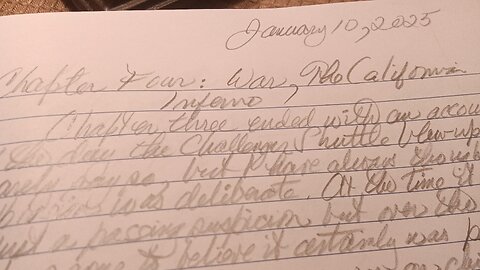 January 10, 2025
Chapter Four: War, The California
Inferno
Chapter three ended with an accou
the day the Challenger Shuttle blew up
but I have always thought
was deliberate. At the time it
just a passing suspicion but over the
to believe it certainly was p